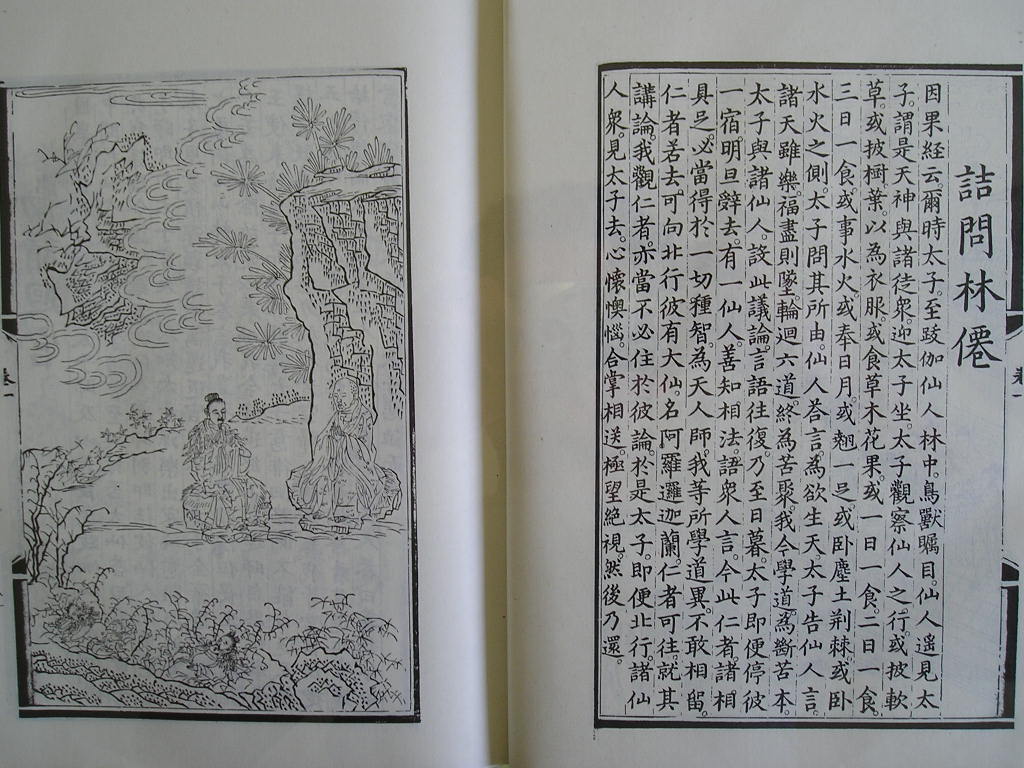 詰問林僊
因果經云。爾時太子。至跋伽仙人林中。鳥獸矚目。仙人遙見太
子。謂是天神。與諸徒衆。迎太子坐。太子觀察仙人之行。或披軟
草。或披樹葉。以為衣服。或食草木花果。或一日一食。二日一食
三日一食。或事水火。或奉日月。或翹一足。或卧塵土荆棘。或卧
水火之側。太子問其所由。仙人荅言。為欲生天。太子告仙人言。
諸天雖樂。福盡則墜。輪迴六道。終為苦聚。我今學道。為斷苦本。
太子與諸仙人。設此議論。言語往復。乃至日暮。太子即便停彼
一宿。明旦辭去。有一仙人。善知相法。語衆人言。今此仁者諸相
具足。必當得於一切種智。為天人師。我等所學道異。不敢相留。
仁者若去。可向北行。彼有大仙。名阿羅邏迦蘭。仁者可往。就其
講論。我觀仁者。亦當不必住於彼論。於是太子。即便北行。諸仙
人衆。見太子去。心懷懊惱。合掌相送。極望絶視。然後乃還。
卷一